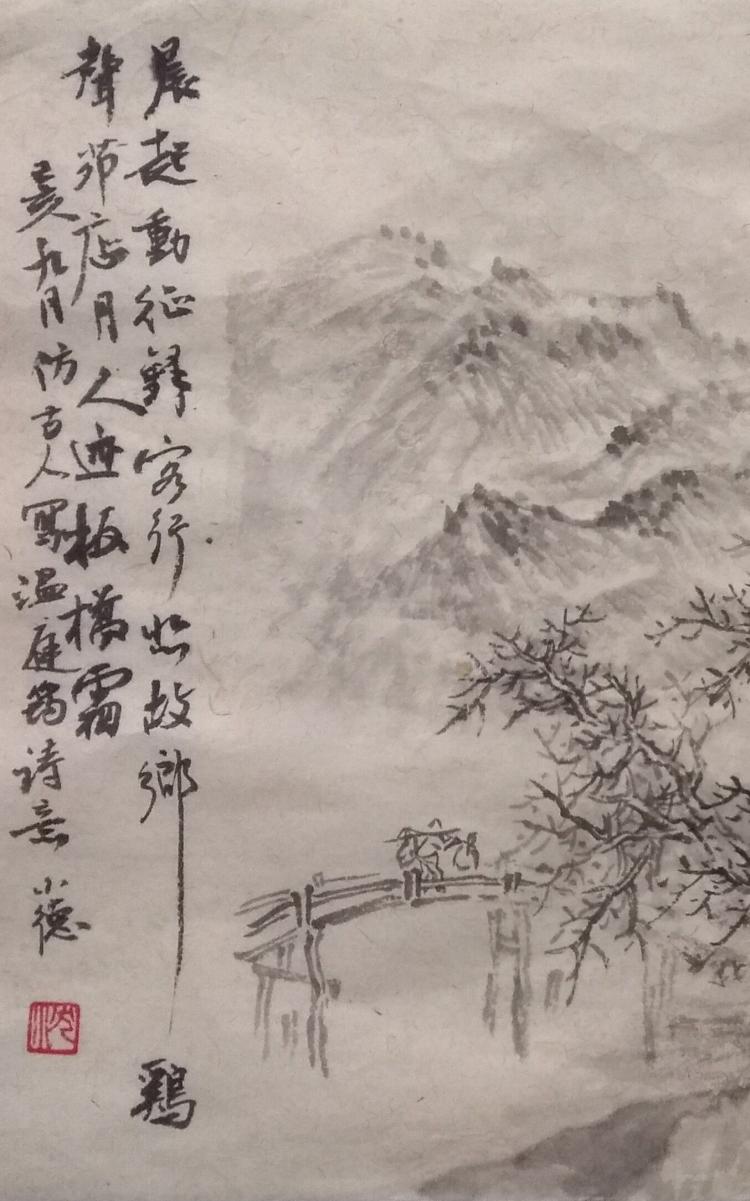 晨起動征鐸客行悲故鄉鷄
聲茆店月人迹板橋霜
九月仿古人寫温庭筠詩意 小德